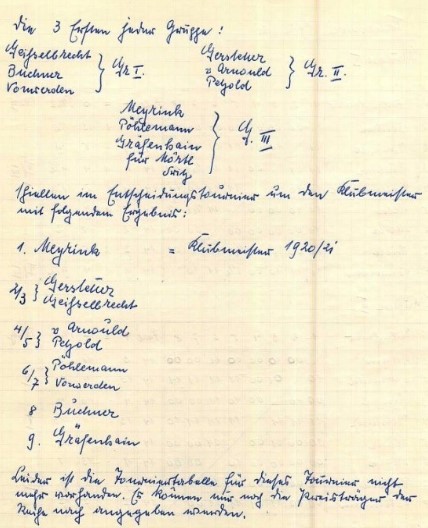 Die 3 Ersten jeder Gruppe:
Geißelbrecht
Büchner
Vonwerden
Gr. I.
Gerstetter
v Arnould
Petzold
Gr. II.
Meyrink
Pöhlemann
Gräfenhain
für Mörtl
Fritz
G. III
spielten im Entscheidungstournier um den Klubmeister
mit folgendem Ergebnis:
1. Meyrink = Klubmeister 1920/21
2/3 } Gerstetter
Geißelbrecht
4/5 } v Arnould
Petzold
6/7 } Pöhlemann
Vonwerden
8 Büchner
9. Gräfenhain
Leider ist die Tourniertabelle für dieses Tournier nicht
mehr vorhanden. Es können nur noch die Preisträger der
Reihe nach angegeben werden.